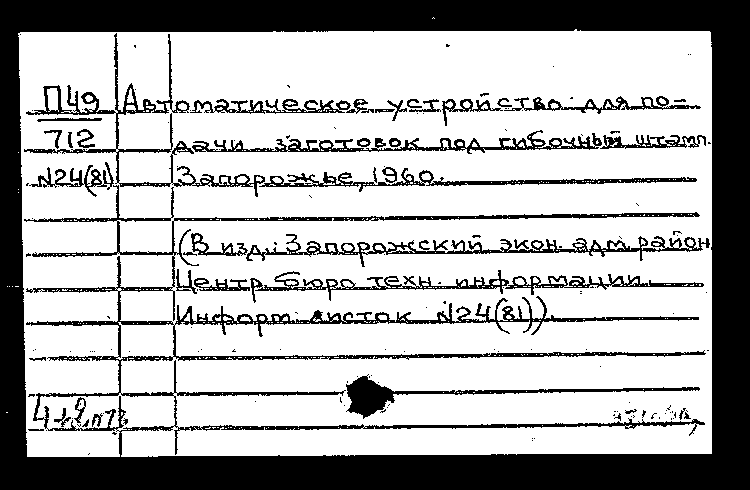 П49 Автоматическое устройство для по-
712 дачи заготовок под гибочный штамп.
N24(81) Запорожье, 1960.
(В изд.: Запорожский экон. адм. район.
Центр. бюро техн. информации.
Информ. листок N24(81)).